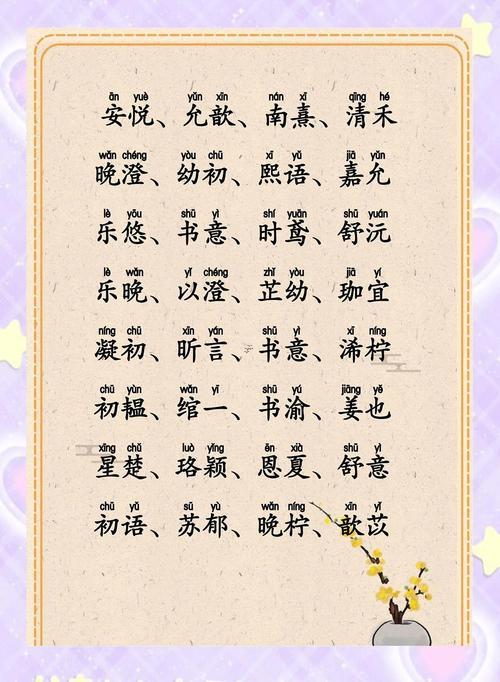 ān yuè yǔn xīn nán xī qīng hé
安悦、允歆、南熹、清禾
wǎn chéng yòu chū xī yǔ jiā yǔn
晚澄、幼初、熙语、嘉允
lè yōu shū yì shí yuān shū yuán
乐悠、书意、时鸢、舒沅
lè wǎn yǐ chéng zhǐ yòu jiā yí
乐晚、以澄、芷幼、珈宜
níng chū xīn yán shū yì xī níng
凝初、昕言、书意、浠柠
chū yùn wǎn yī shū yú jiāng yě
初韫、绾一、书渝、姜也
xīng chǔ luò yǐng ēn xià shū yì
星楚、珞颖、恩夏、舒意
chū yǔ sū yù wǎn níng xīn yǐ
初语、苏郁、晚柠、歆苡